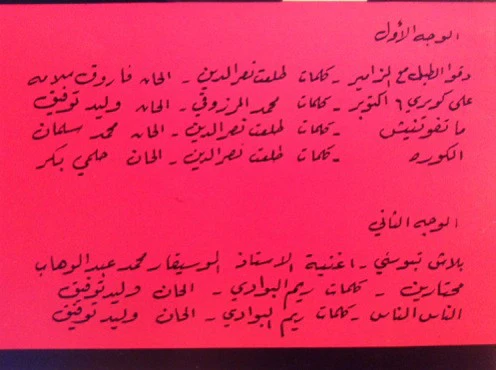 الوجه الأول
دقوا الطبل مع المزامير - كلمات طلعت نصر الدين - الحان فاروق سلامه
على كوبري ٦ اكتوبر - كلمات محمد المرزوقي - الحان وليد توفيق
ما تفوتنيش - كلمات طلعت نصر الدين - الحان محمد سلمان
الكوره - كلمات طلعت نصر الدين - الحان حلمي بكر
الوجه الثاني
بلاش تبوسني - اغنية الاستاذ الموسيقار محمد عبد الوهاب
محتارين - كلمات ريم البوادي - الحان وليد توفيق
الناس الناس - كلمات ريم البوادي - الحان وليد توفيق